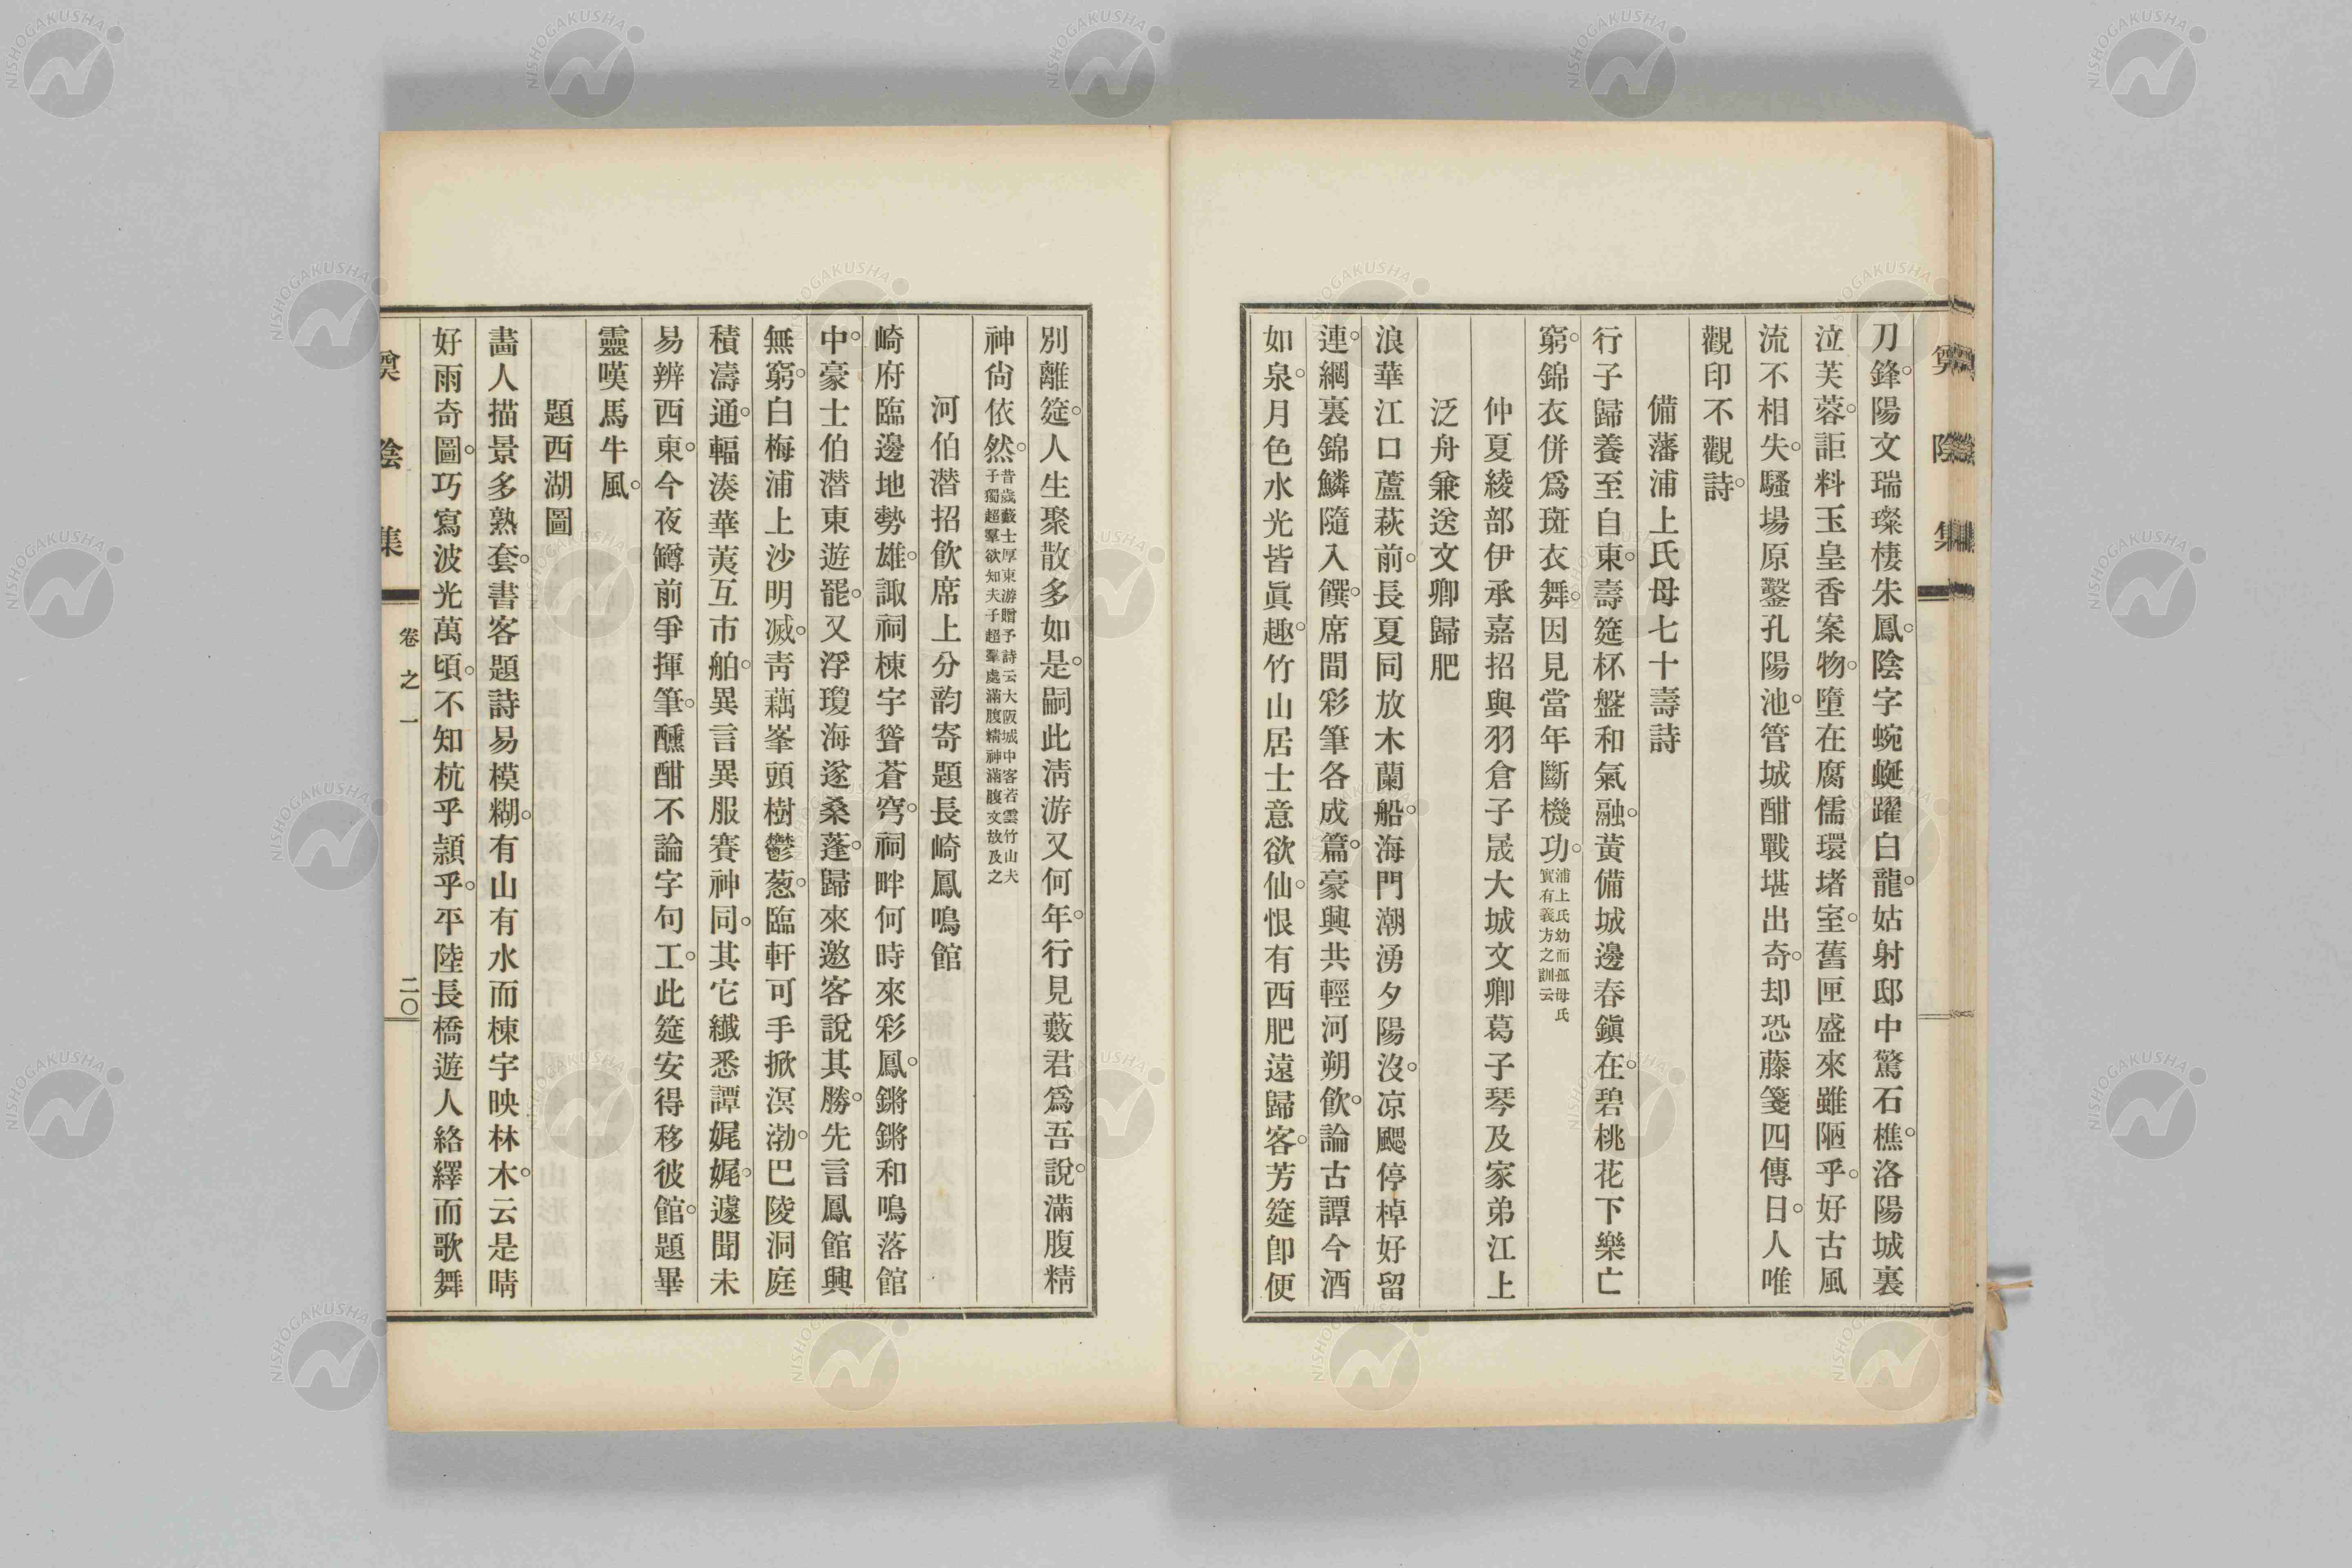 刀鋒。陽文瑞璨棲朱鳳。陰字蜿蜒躍白龍。姑射邸中驚石樵。洛陽城裏
泣芙蓉。詎料玉皇香案物。墮在腐儒環堵室。舊匣盛來雖陋乎。好古風
流不相失。騷場原鑿孔陽池。管城酣戰堪出奇。却恐藤箋四傳日。人唯
觀印不觀詩。
備藩浦上氏母七十壽詩
行子歸養至自東。壽筵杯盤和氣融。黃備城邊春鎭在。碧桃花下樂亡
窮。錦衣併爲斑衣舞。因見當年斷機功。浦上氏幼而孤毋氏
實有義方之訓云
仲夏綾部伊承嘉招與羽倉子晟大城文卿葛子琴及家弟江上
泛舟兼送文卿歸肥
浪華江口蘆萩前。長夏同放木蘭船。海門潮湧夕陽沒。凉颸停棹好留
連。網裏錦鱗隨入饌。席間彩筆各成篇。豪興共輕河朔飮。論古譚今酒
如泉。月色水光皆眞趣。竹山居士意欲仙。恨有西肥遠歸客。芳筵卽便
別離筵。人生聚散多如是。嗣此淸游又何年。行見藪君爲吾說。滿腹精
神尙依然。昔歲藪士厚東游贈予詩云大阪城中客若雲竹山夫
子獨超羣欲知夫子超羣處滿腹精神滿腹文故及之
河伯潛招飮席上分韵寄題長崎鳳鳴館
崎府臨邊地勢雄。諏祠棟宇聳蒼穹。祠畔何時來彩鳳。鏘鏘和鳴落館
中。豪士伯潛東遊罷。又浮瓊海遂桑蓬。歸來邀客說其勝。先言鳳館興
無窮。白梅浦上沙明滅。靑藕峯頭樹鬱葱。臨軒可手掀溟渤。巴陵洞庭
積濤通。輻湊華夷互市舶。異言異服賽神同。其它纎悉譚娓娓。遽聞未
易辨西東。今夜罇前爭揮筆。醺酣不論字句工。此筵安得移彼館。題畢
靈嘆馬牛風。
題西湖圖
畵人描景多熟套。書客題詩易模糊。有山有水而棟宇映林木。云是晴
好雨奇圖。巧寫波光萬頃。不知杭乎潁乎。平陸長橋遊人絡繹而歌舞
奠陰集
卷之一
二〇